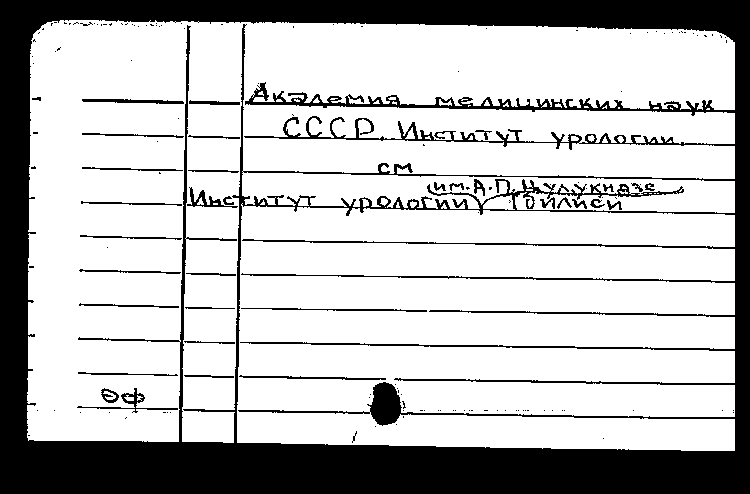 Академия медицинских наук
СССР. Институт урологии.
см
(им. А.П. Цулукидзе)
Институт урологии (Тбилиси
ӨФ